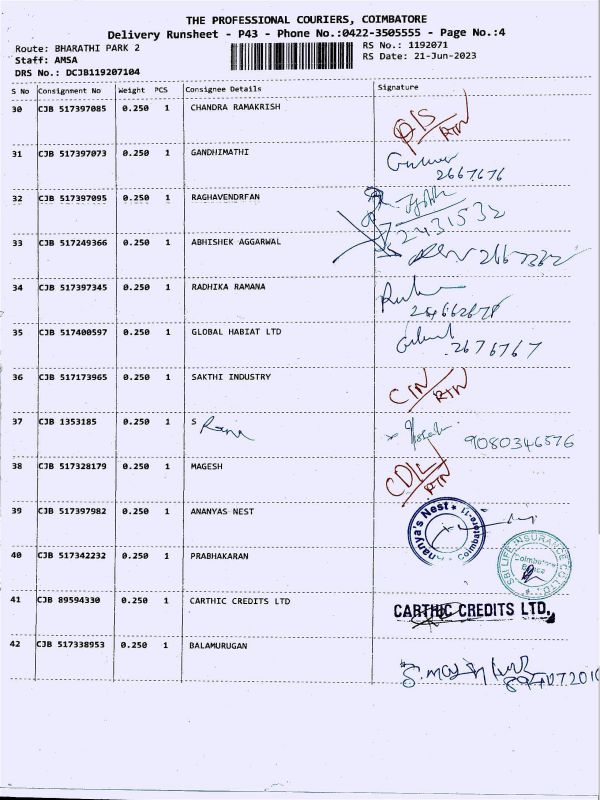 THE PROFESSIONAL COURIERS, COIMBATORE
Delivery Runsheet - P43 - Phone No.:0422-3505555 - Page No.:4
Route: BHARATHI PARK 2 RS No.: 1192071
Staff: AMSA RS Date: 21-Jun-2023
DRS No.: DCJB119207104
S No Consignment No Weight PCS Consignee Details Signature
30 CJB 517397085 0.250 1 CHANDRA RAMAKRISH RTN
31 CJB 517397073 0.250 1 GANDHIMATHI
2667676
32 CJB 517397095 0.250 1 RAGHAVENDRFAN
2431532
33 CJB 517249366 0.250 1 ABHISHEK AGGARWAL
34 CJB 517397345 0.250 1 RADHIKA RAMANA
35 CJB 517400597 0.250 1 GLOBAL HABIAT LTD
2676767
36 CJB 517173965 0.250 1 SAKTHI INDUSTRY CIN RTN
37 CJB 1353185 0.250 1 S 9080346576
38 CJB 517328179 0.250 1 MAGESH CDL RTN
39 CJB 517397982 0.250 1 ANANYAS NEST
40 CJB 517342232 0.250 1 PRABHAKARAN SBI LIFE INSURANCE CO LTD
41 CJB 89594330 0.250 1 CARTHIC CREDITS LTD CARTHIC CREDITS LTD.
42 CJB 517338953 0.250 1 BALAMURUGAN